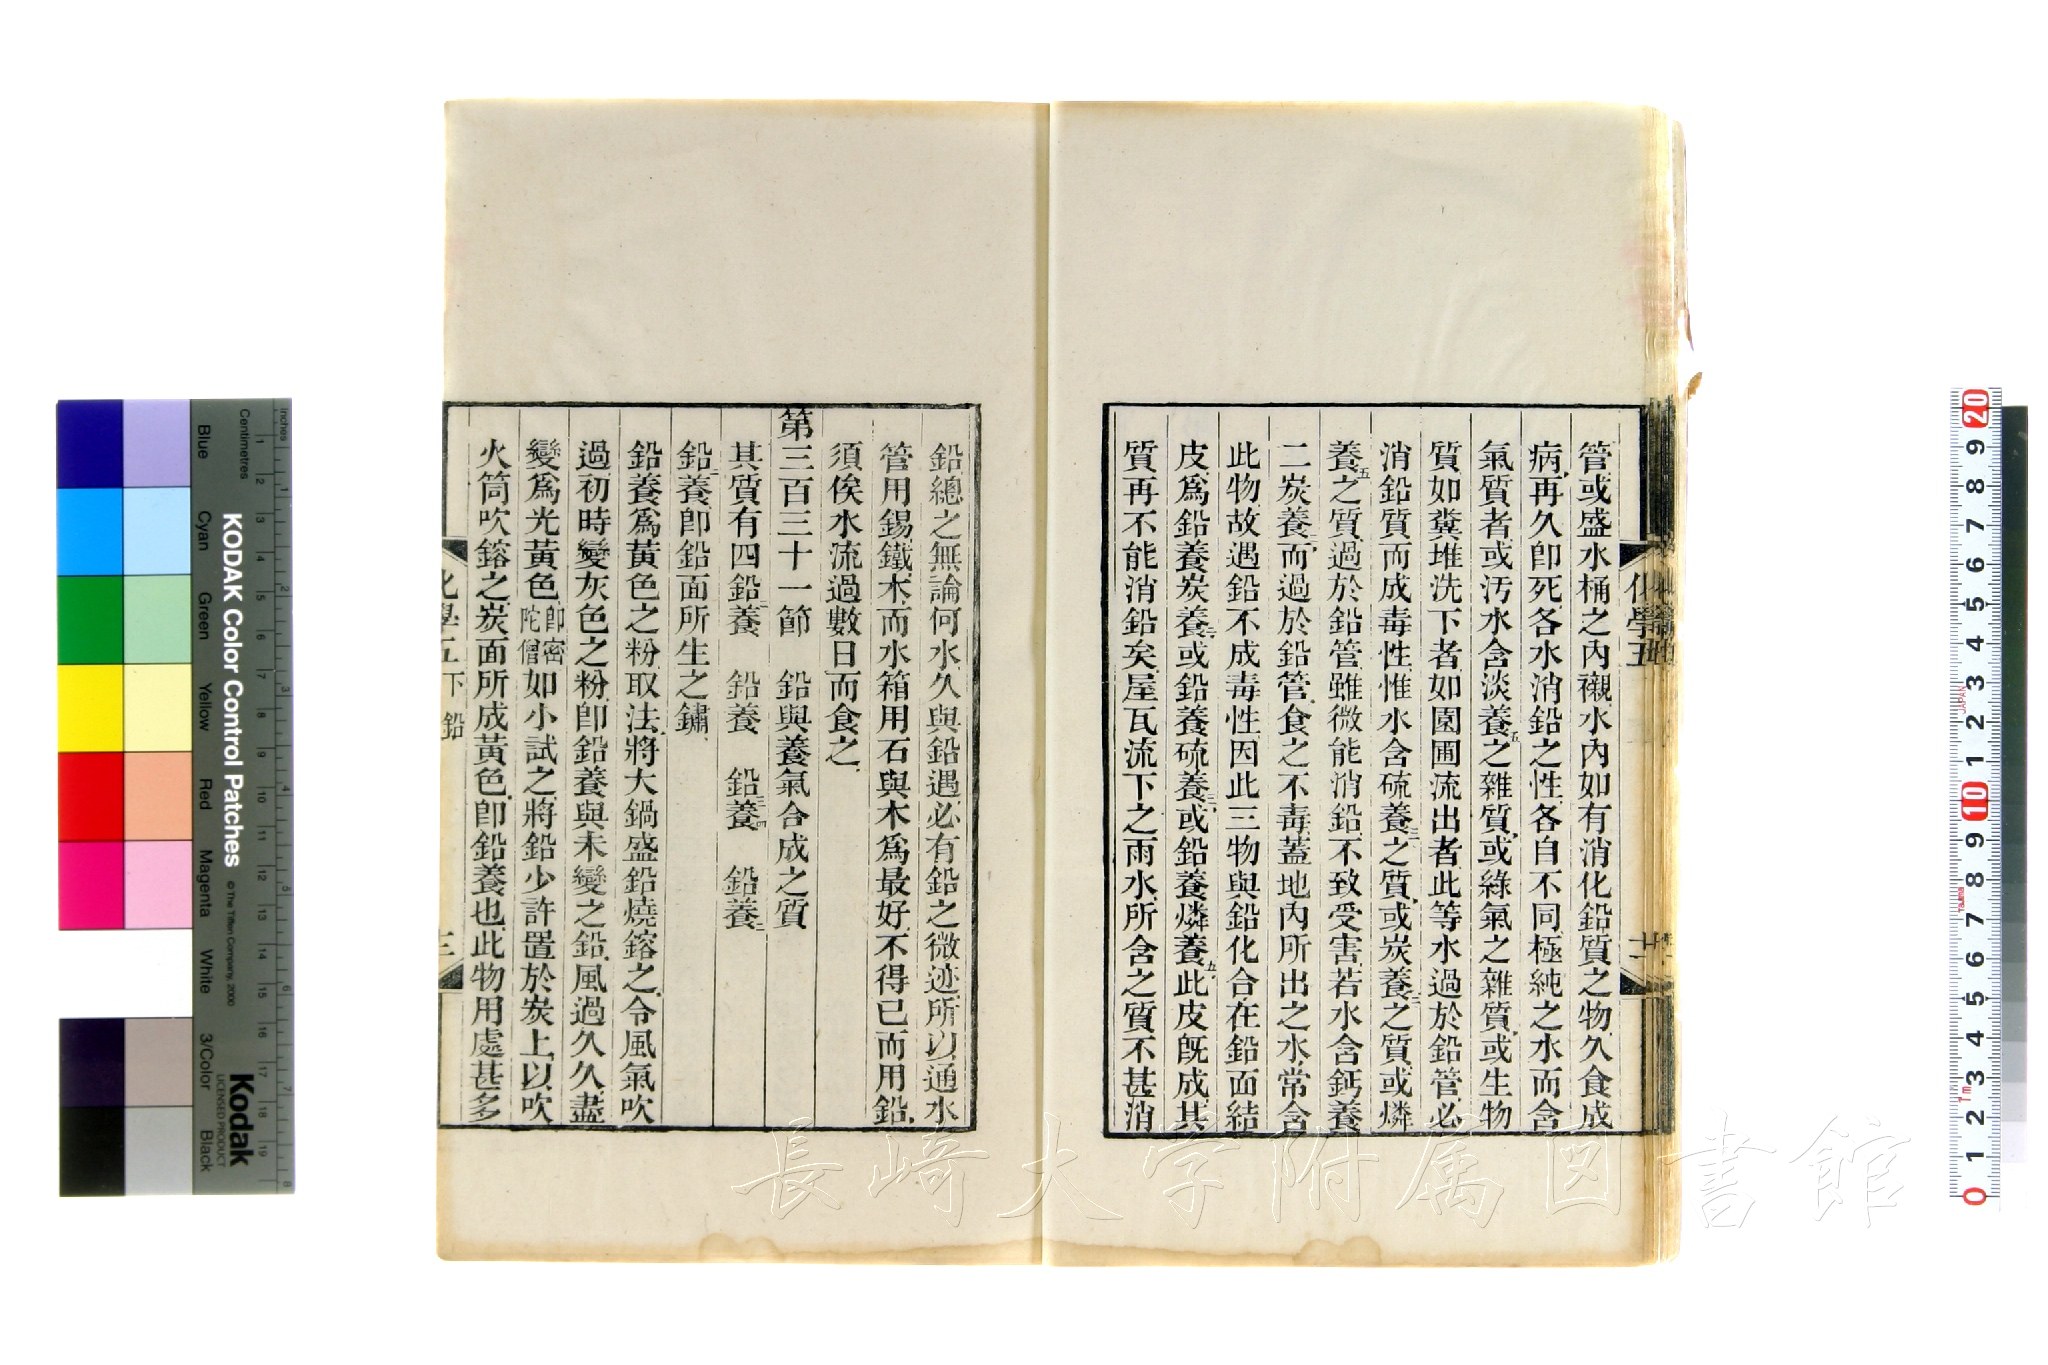 管或盛水桶之內襯水內如有消化鉛質之物久食成
病再久卽死各水消鉛之性各自不同極純之水而含
氣質者或汚水含淡養五之雜質或綠氣之雜質或生物
質如糞堆洗下者如園圃流出者此等水過於鉛管必
消鉛質而成毒性惟水含硫養三之質或炭養二之質或燐
養五之質過於鉛管雖微能消鉛不致受害若水含鈣養
二炭養二而過於鉛管食之不毒蓋地內所出之水常含
此物故遇鉛不成毒性因此三物與鉛化合在鉛面結
皮爲鉛養炭養二或鉛養硫養三或鉛養燐養五此皮旣成其
質再不能消鉛矣屋瓦流下之雨水所含之質不甚消
鉛總之無論何水久與鉛遇必有鉛之微迹所以通水
管用錫鐵木而水箱用石與木爲最好不得已而用鉛
須俟水流過數日而食之
第三百三十一節 鉛與養氣合成之質
其質有四鉛二養 鉛養 鉛三養四 鉛養二
鉛二養卽鉛面所生之鏽
鉛養爲黃色之粉取法將大鍋盛鉛燒鎔之令風氣吹
過初時變灰色之粉卽鉛養與未變之鉛風過久久盡
變爲光黃色卽密陀僧如小試之將鉛少許置於炭上以吹
火筒吹鎔之炭面所成黃色卽鉛養也此物用處甚多
化學五下 鉛 三
化學五
KODAK Color Control Patches
© The Tiffen Company, 2000
Kodak
LICENSED PRODUCT
Inches
Centimetres
Blue
Cyan
Green
Yellow
Red
Magenta
White
3/Color
Black
長崎大学附属図書館